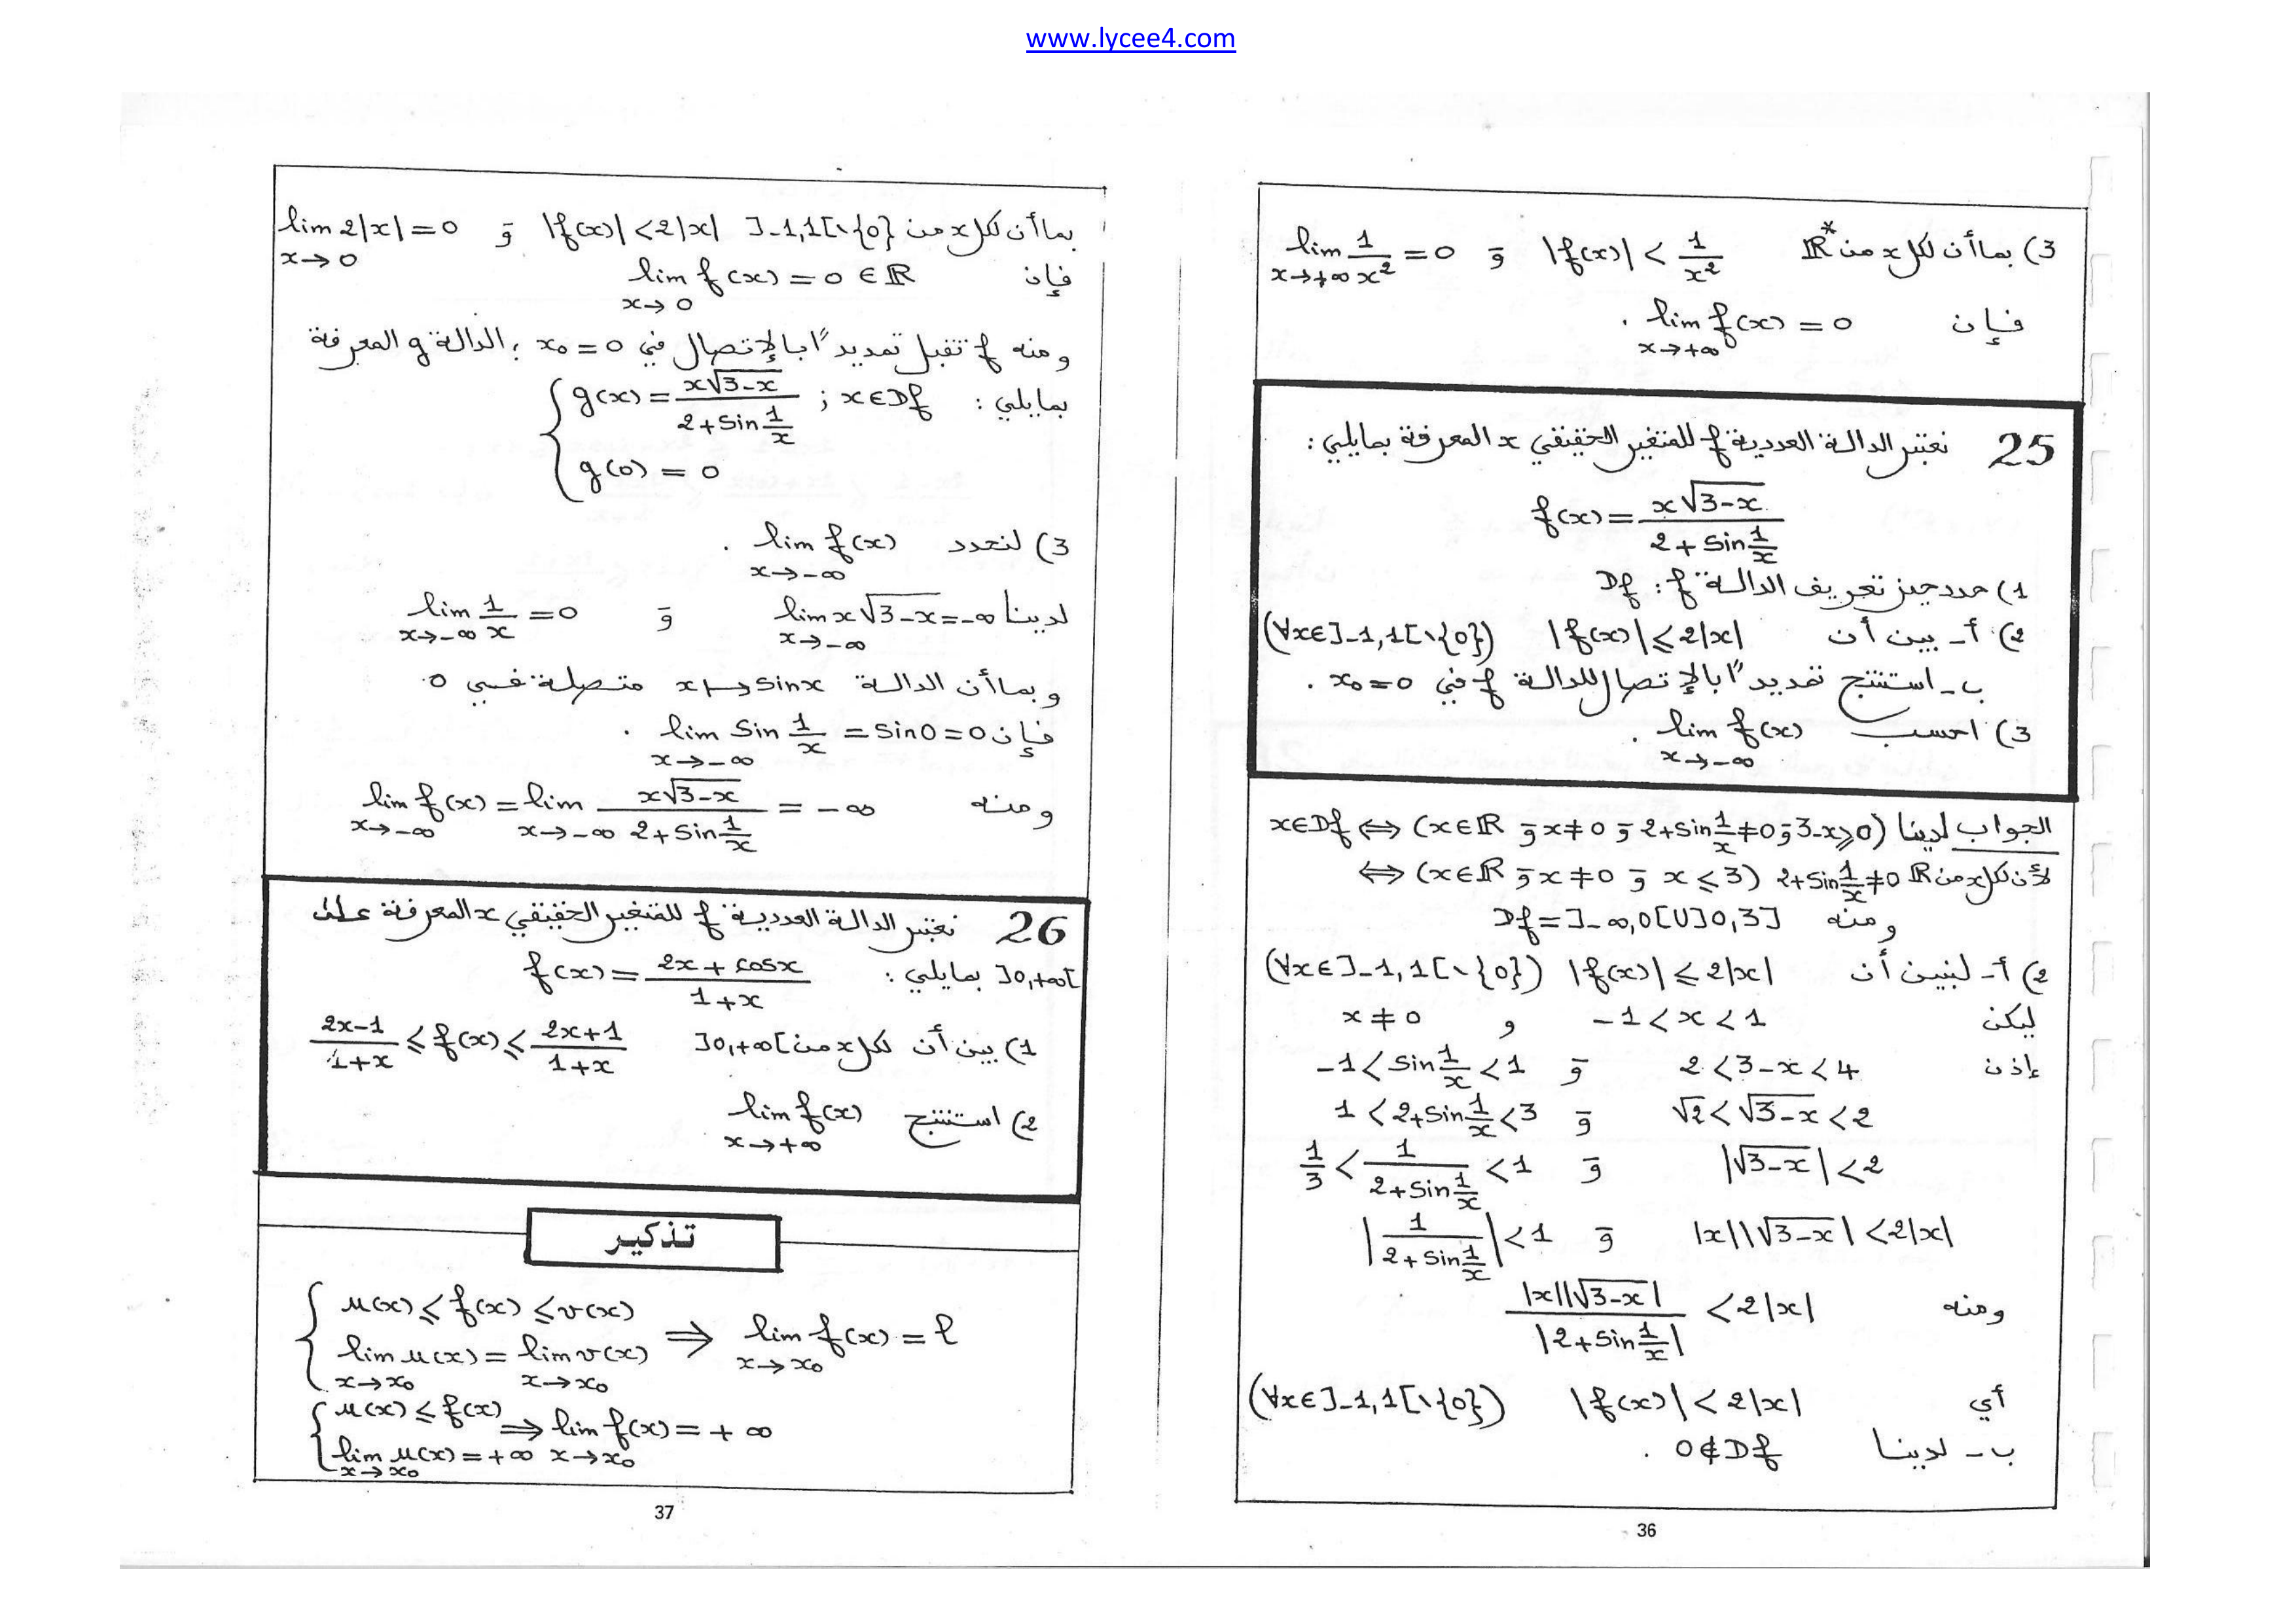 www.lycee4.com
3) بما أن لكل x من ℝ* |f(x)| < 1/x² و lim_{x→+∞} 1/x² = 0
فإن lim_{x→+∞} f(x) = 0 .
25 نعتبر الدالة العددية f للمتغير الحقيقي x المعرفة بمايلي :
f(x) = x√(3-x) / (2 + sin 1/x)
1) حدد حيز تعريف الدالة f : Df
2) أ- بين أن |f(x)| ≤ 2|x| (∀x∈]-1,1[\{0})
ب- استنتج تمديدا بالإتصال للدالة f في x₀ = 0 .
3) احسب lim_{x→-∞} f(x) .
الجواب لدينا x∈Df ⟺ (x∈ℝ و x≠0 و 2+sin 1/x ≠ 0 و 3-x ≥ 0)
⟺ (x∈ℝ و x≠0 و x ≤ 3) لأن لكل x من ℝ 2+sin 1/x ≠ 0
ومنه Df = ]-∞,0[∪]0,3]
2) أ- لنبين أن |f(x)| ≤ 2|x| (∀x∈]-1,1[\{0})
ليكن -1 < x < 1 و x ≠ 0
إذن 2 < 3-x < 4 و -1 < sin 1/x < 1
√2 < √(3-x) < 2 و 1 < 2+sin 1/x < 3
|√(3-x)| < 2 و 1/3 < 1/(2+sin 1/x) < 1
|x||√(3-x)| < 2|x| و |1/(2+sin 1/x)| < 1
ومنه |x||√(3-x)| / |2+sin 1/x| < 2|x|
أي |f(x)| < 2|x| (∀x∈]-1,1[\{0})
ب- لدينا 0∉Df .
36
بما أن لكل x من ]-1,1[\{0} |f(x)| < 2|x| و lim_{x→0} 2|x| = 0
فإن lim_{x→0} f(x) = 0 ∈ ℝ
ومنه f تقبل تمديدا بالإتصال في x₀ = 0 ; الدالة g المعرفة
بمايلي : { g(x) = x√(3-x) / (2+sin 1/x) ; x∈Df
g(0) = 0
3) لنحدد lim_{x→-∞} f(x) .
لدينا lim_{x→-∞} x√(3-x) = -∞ و lim_{x→-∞} 1/x = 0
وبما أن الدالة x↦sin x متصلة في 0
فإن lim_{x→-∞} sin 1/x = sin 0 = 0 .
ومنه lim_{x→-∞} f(x) = lim_{x→-∞} x√(3-x) / (2+sin 1/x) = -∞
26 نعتبر الدالة العددية f للمتغير الحقيقي x المعرفة على
]0,+∞[ بمايلي : f(x) = (2x + cos x) / (1+x)
1) بين أن لكل x من ]0,+∞[ (2x-1)/(1+x) ≤ f(x) ≤ (2x+1)/(1+x)
2) استنتج lim_{x→+∞} f(x)
تذكير
{ u(x) ≤ f(x) ≤ v(x)
lim_{x→x₀} u(x) = lim_{x→x₀} v(x) ⟹ lim_{x→x₀} f(x) = ℓ
{ u(x) ≤ f(x) ⟹ lim_{x→x₀} f(x) = +∞
lim_{x→x₀} u(x) = +∞
37